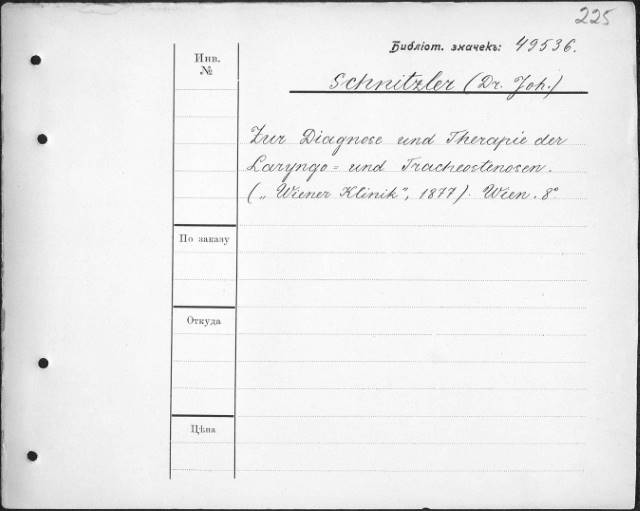 225
Библіот. значекъ: 49536.
Инв.
№
Schnitzler (Dr. Joh.)
Zur Diagnose und Therapie der
Laryngo= und Tracheostenosen.
(„Wiener Klinik", 1877). Wien. 8°
По заказу
Откуда
Цѣна